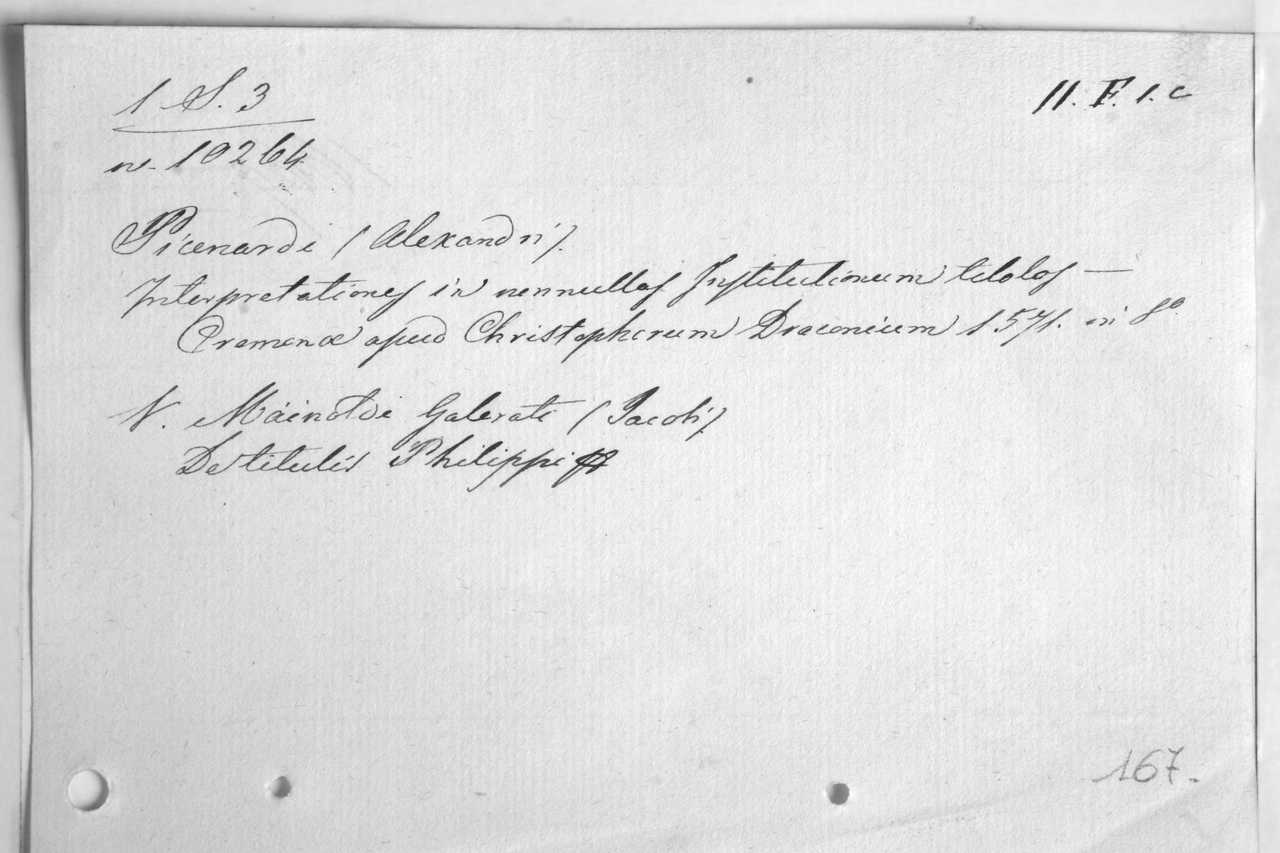 1 S. 3
II. F. 1. c
n. 10264
Picenardi (Alexandri).
Interpretationes in nonnullos Institutionum titolos —
Cremonæ apud Christophorum Draconium 1571. in 8º
V. Mainoldi Galerati (Jacobi)
De titulis Philippi
167.